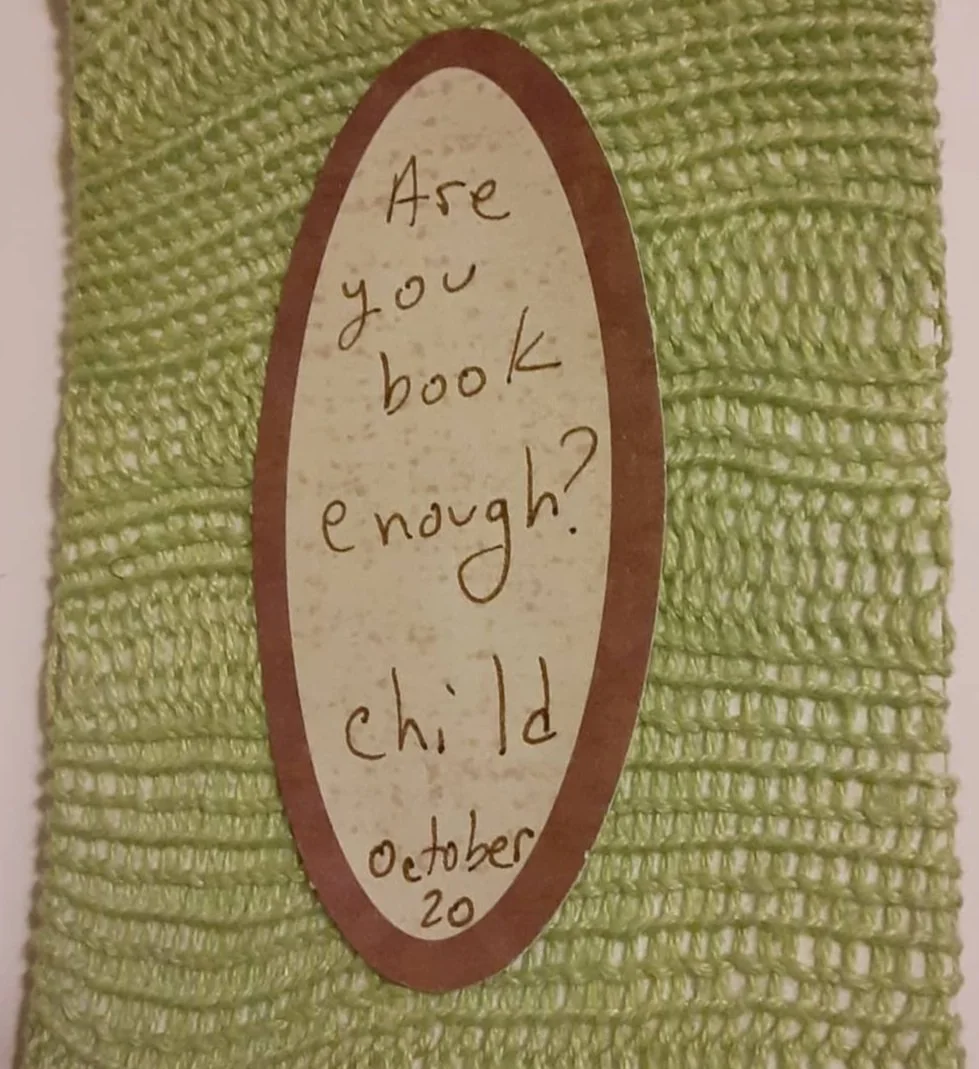 Are
you
book
enough?
child
October
20